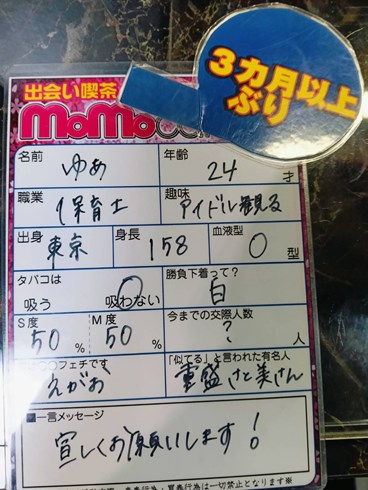 3カ月以上
ぶり
出会い喫茶
MoMo
名前 ゆあ 年齢 24 才
職業 保育士 趣味 アイドル観る
出身 東京 身長 158 血液型 O 型
タバコは 吸う 吸わない 勝負下着って? 白
S度 50 % M度 50 % 今までの交際人数 ? 人
フェチです えがお 「似てる」と言われた有名人 重盛さと美さん
■一言メッセージ
宜しくお願いします!
買春行為は一切禁止となります※